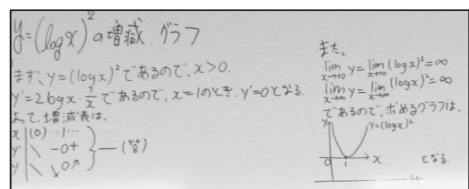 y=(log x)²の増減、グラフ
まず、y=(log x)²であるので、x>0.
y'=2log x・1/x であるので、x=1のとき、y'=0となる.
よって、増減表は、
x | (0) … 1 …
y' | \ - 0 +
y | \ ↘ 0 ↗
―(答)
また、
lim x→+0 y = lim x→+0 (log x)² = ∞
lim x→∞ y = lim x→∞ (log x)² = ∞
であるので、求めるグラフは、
y=(log x)²
0 1 x
となる.